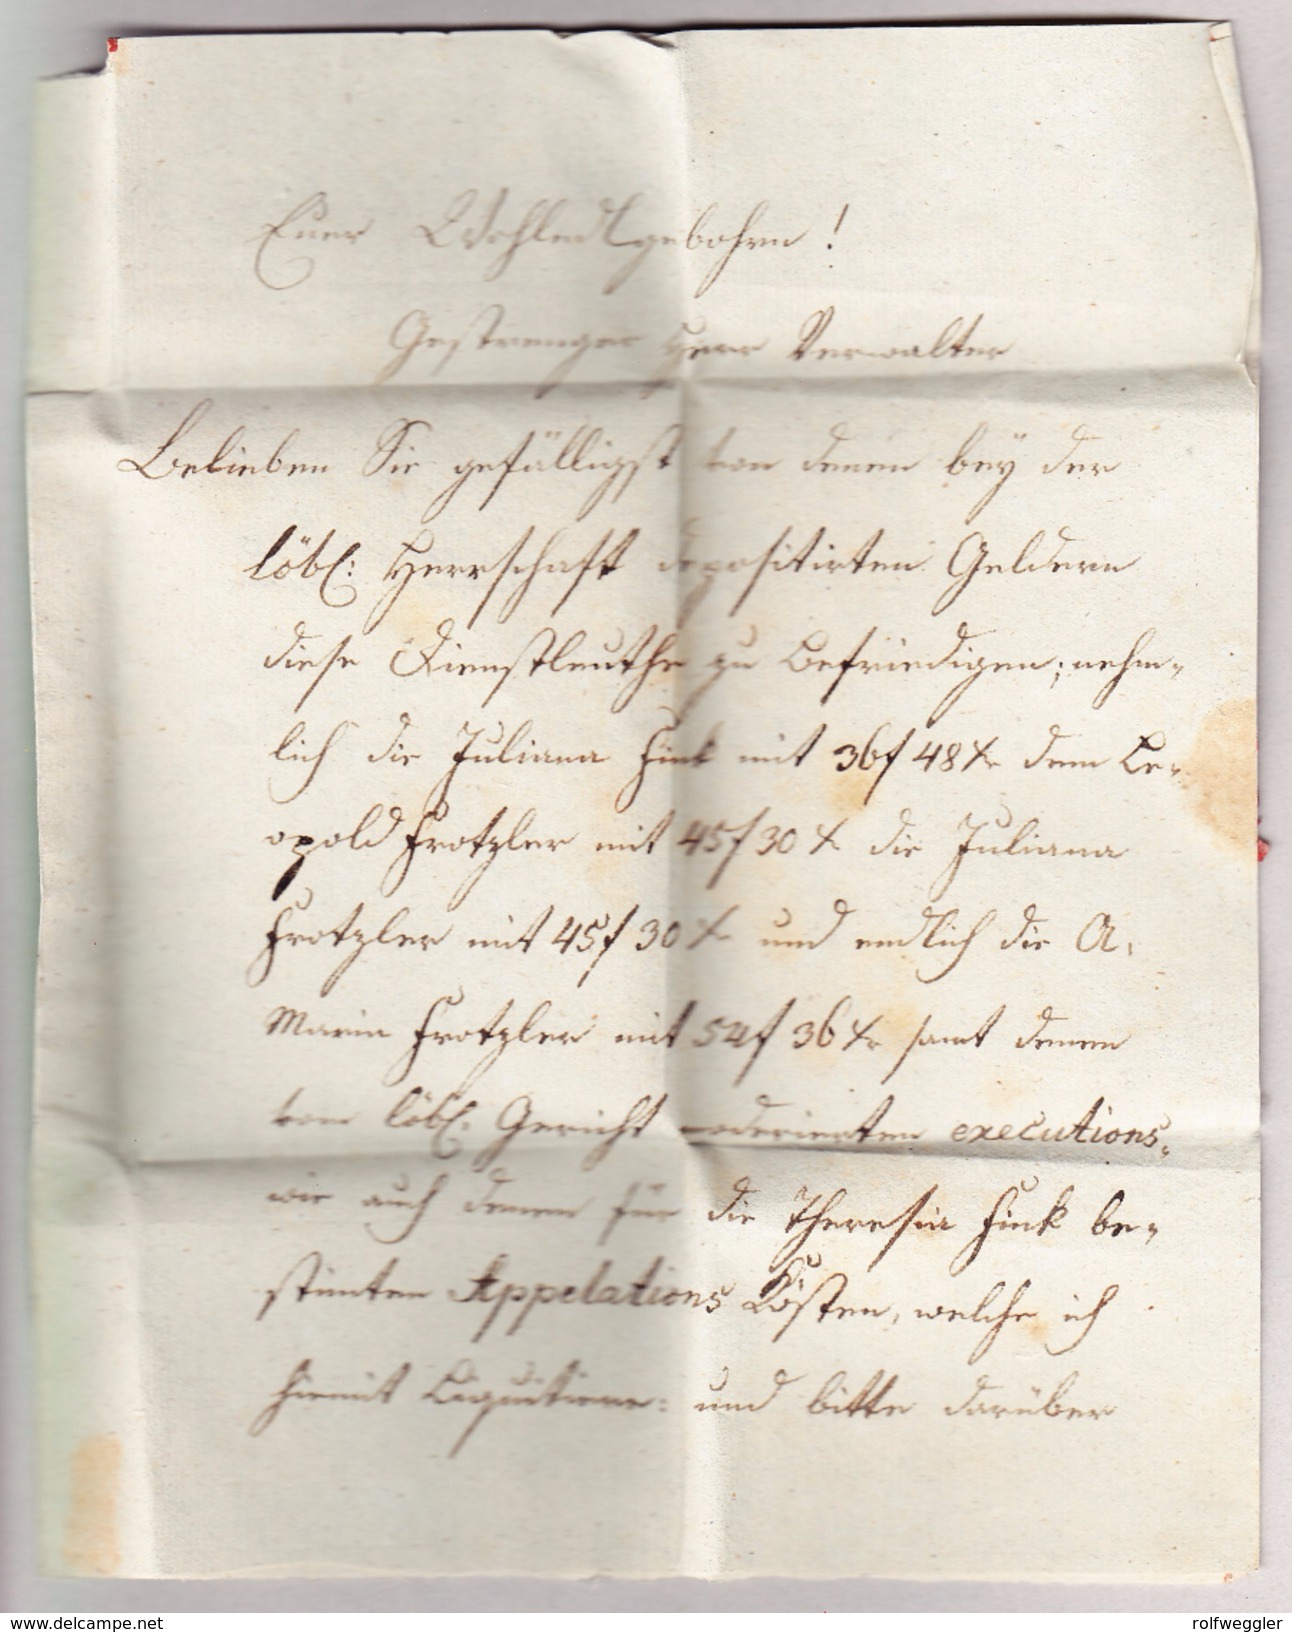 Euer Wohledlgebohrn!
Gestrenger Herr Verwalter
Belieben Sie gefälligst von denen bey der
löbl: Herrschaft depositirten Geldern
diese Dienstleuthe zu befriedigen; nehm„
lich die Juliana Fink mit 36f 48x dem Le„
opold Frotzler mit 45f 30x die Juliana
Frotzler mit 45f 30x und endlich die A.
Maria Frotzler mit 54f 36x samt denen
vom löbl. Gericht moderierten executions„
wie auch denen für die Theresia Fink be„
stimten Appelations Kösten, welche ich
hiemit Liquitiere: und bitte darüber
www.delcampe.net
rolfweggler